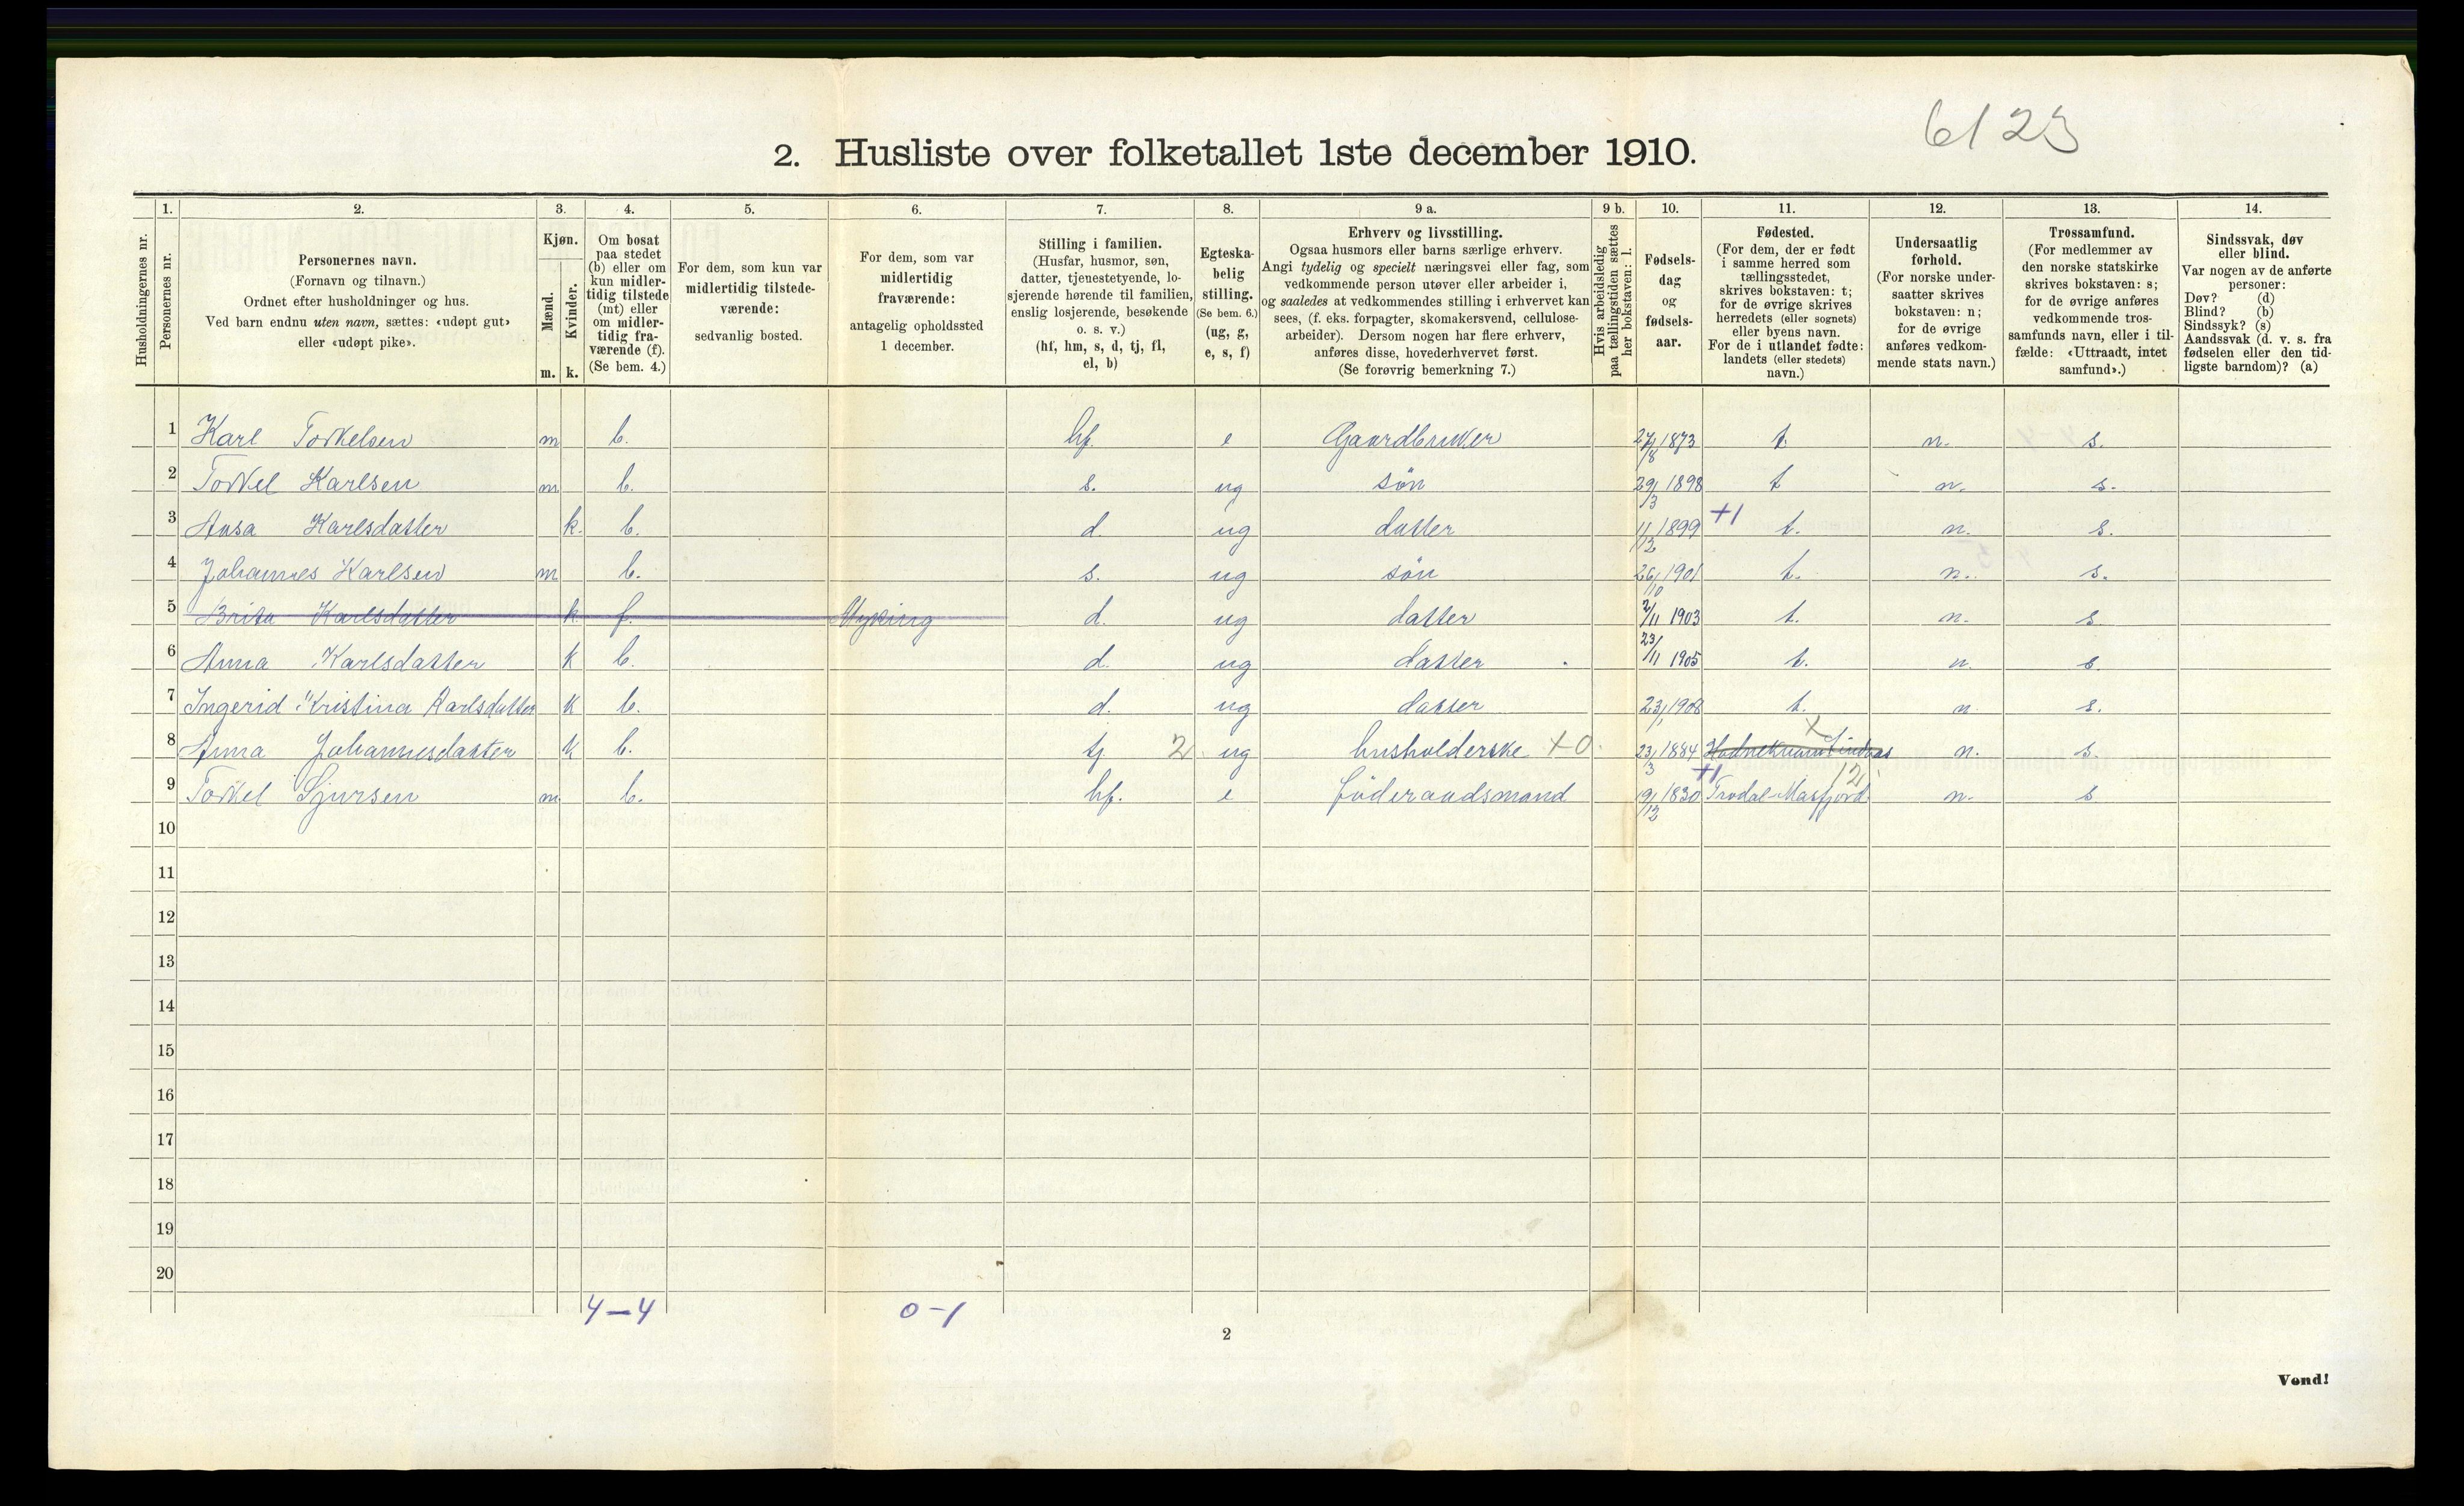 6123
2. Husliste over folketallet 1ste december 1910.
Husholdningernes nr.
1.
Personernes nr.
2.
Personernes navn.
(Fornavn og tilnavn.)
Ordnet efter husholdninger og hus.
Ved barn endnu uten navn, sættes: «udøpt gut»
eller «udøpt pike».
3.
Kjøn.
Mænd.
Kvinder.
m. k.
4.
Om bosat
paa stedet
(b) eller om
kun midler-
tidig tilstede
(mt) eller
om midler-
tidig fra-
værende (f).
(Se bem. 4.)
5.
For dem, som kun var
midlertidig tilstede-
værende:
sedvanlig bosted.
6.
For dem, som var
midlertidig
fraværende:
antagelig opholdssted
1 december.
7.
Stilling i familien.
(Husfar, husmor, søn,
datter, tjenestetyende, lo-
sjerende hørende til familien,
enslig losjerende, besøkende
o. s. v.)
(hf, hm, s, d, tj, fl,
el, b)
8.
Egteska-
belig
stilling.
(Se bem. 6.)
(ug, g,
e, s, f)
9 a.
Erhverv og livsstilling.
Ogsaa husmors eller barns særlige erhverv.
Angi tydelig og specielt næringsvei eller fag, som
vedkommende person utøver eller arbeider i,
og saaledes at vedkommendes stilling i erhvervet kan
sees, (f. eks. forpagter, skomakersvend, cellulose-
arbeider). Dersom nogen har flere erhverv,
anføres disse, hovederhvervet først.
(Se forøvrig bemerkning 7.)
9 b.
Hvis arbeidsledig
paa tællingstiden sættes
her bokstaven: l.
10.
Fødsels-
dag
og
fødsels-
aar.
11.
Fødested.
(For dem, der er født
i samme herred som
tællingsstedet,
skrives bokstaven: t;
for de øvrige skrives
herredets (eller sognets)
eller byens navn.
For de i utlandet fødte:
landets (eller stedets)
navn.)
12.
Undersaatlig
forhold.
(For norske under-
saatter skrives
bokstaven: n;
for de øvrige
anføres vedkom-
mende stats navn.)
13.
Trossamfund.
(For medlemmer av
den norske statskirke
skrives bokstaven: s;
for de øvrige anføres
vedkommende tros-
samfunds navn, eller i til-
fælde: «Uttraadt, intet
samfund».)
14.
Sindssvak, døv
eller blind.
Var nogen av de anførte
personer:
Døv? (d)
Blind? (b)
Sindssyk? (s)
Aandssvak (d. v. s. fra
fødselen eller den tid-
ligste barndom)? (a)
1 Karl Torkelsen m b. hf. e Gaardbruker 27/8 1873 t. n. s.
2 Torkel Karlsen m b. s. ug søn 29/3 1898 t n. s.
3 Ansa Karlsdatter k. b. d. ug datter 11/12 1899 +1 t. n. s.
4 Johannes Karlsen m b. s. ug søn 26/10 1901 t. n. s.
5 Brita Karlsdatter k f. Myking d. ug datter 2/11 1903 t. n. s.
6 Anna Karlsdatter k b. d. ug datter 23/11 1905 t. n. s.
7 Ingerid Kristina Karlsdatter k b. d. ug datter 23/1 1908 t. n. s.
8 Anna Johannesdatter k b. tj 2. ug husholderske +0. 23/3 1884 Lindaas x n. s.
9 Torkel Sjursen m. b. hf. e føderaadsmand 19/12 1830 +1 Trodal-Masfjord. 12 n. s
10
11
12
13
14
15
16
17
18
19
20
4-4
0-1
2
Vend!